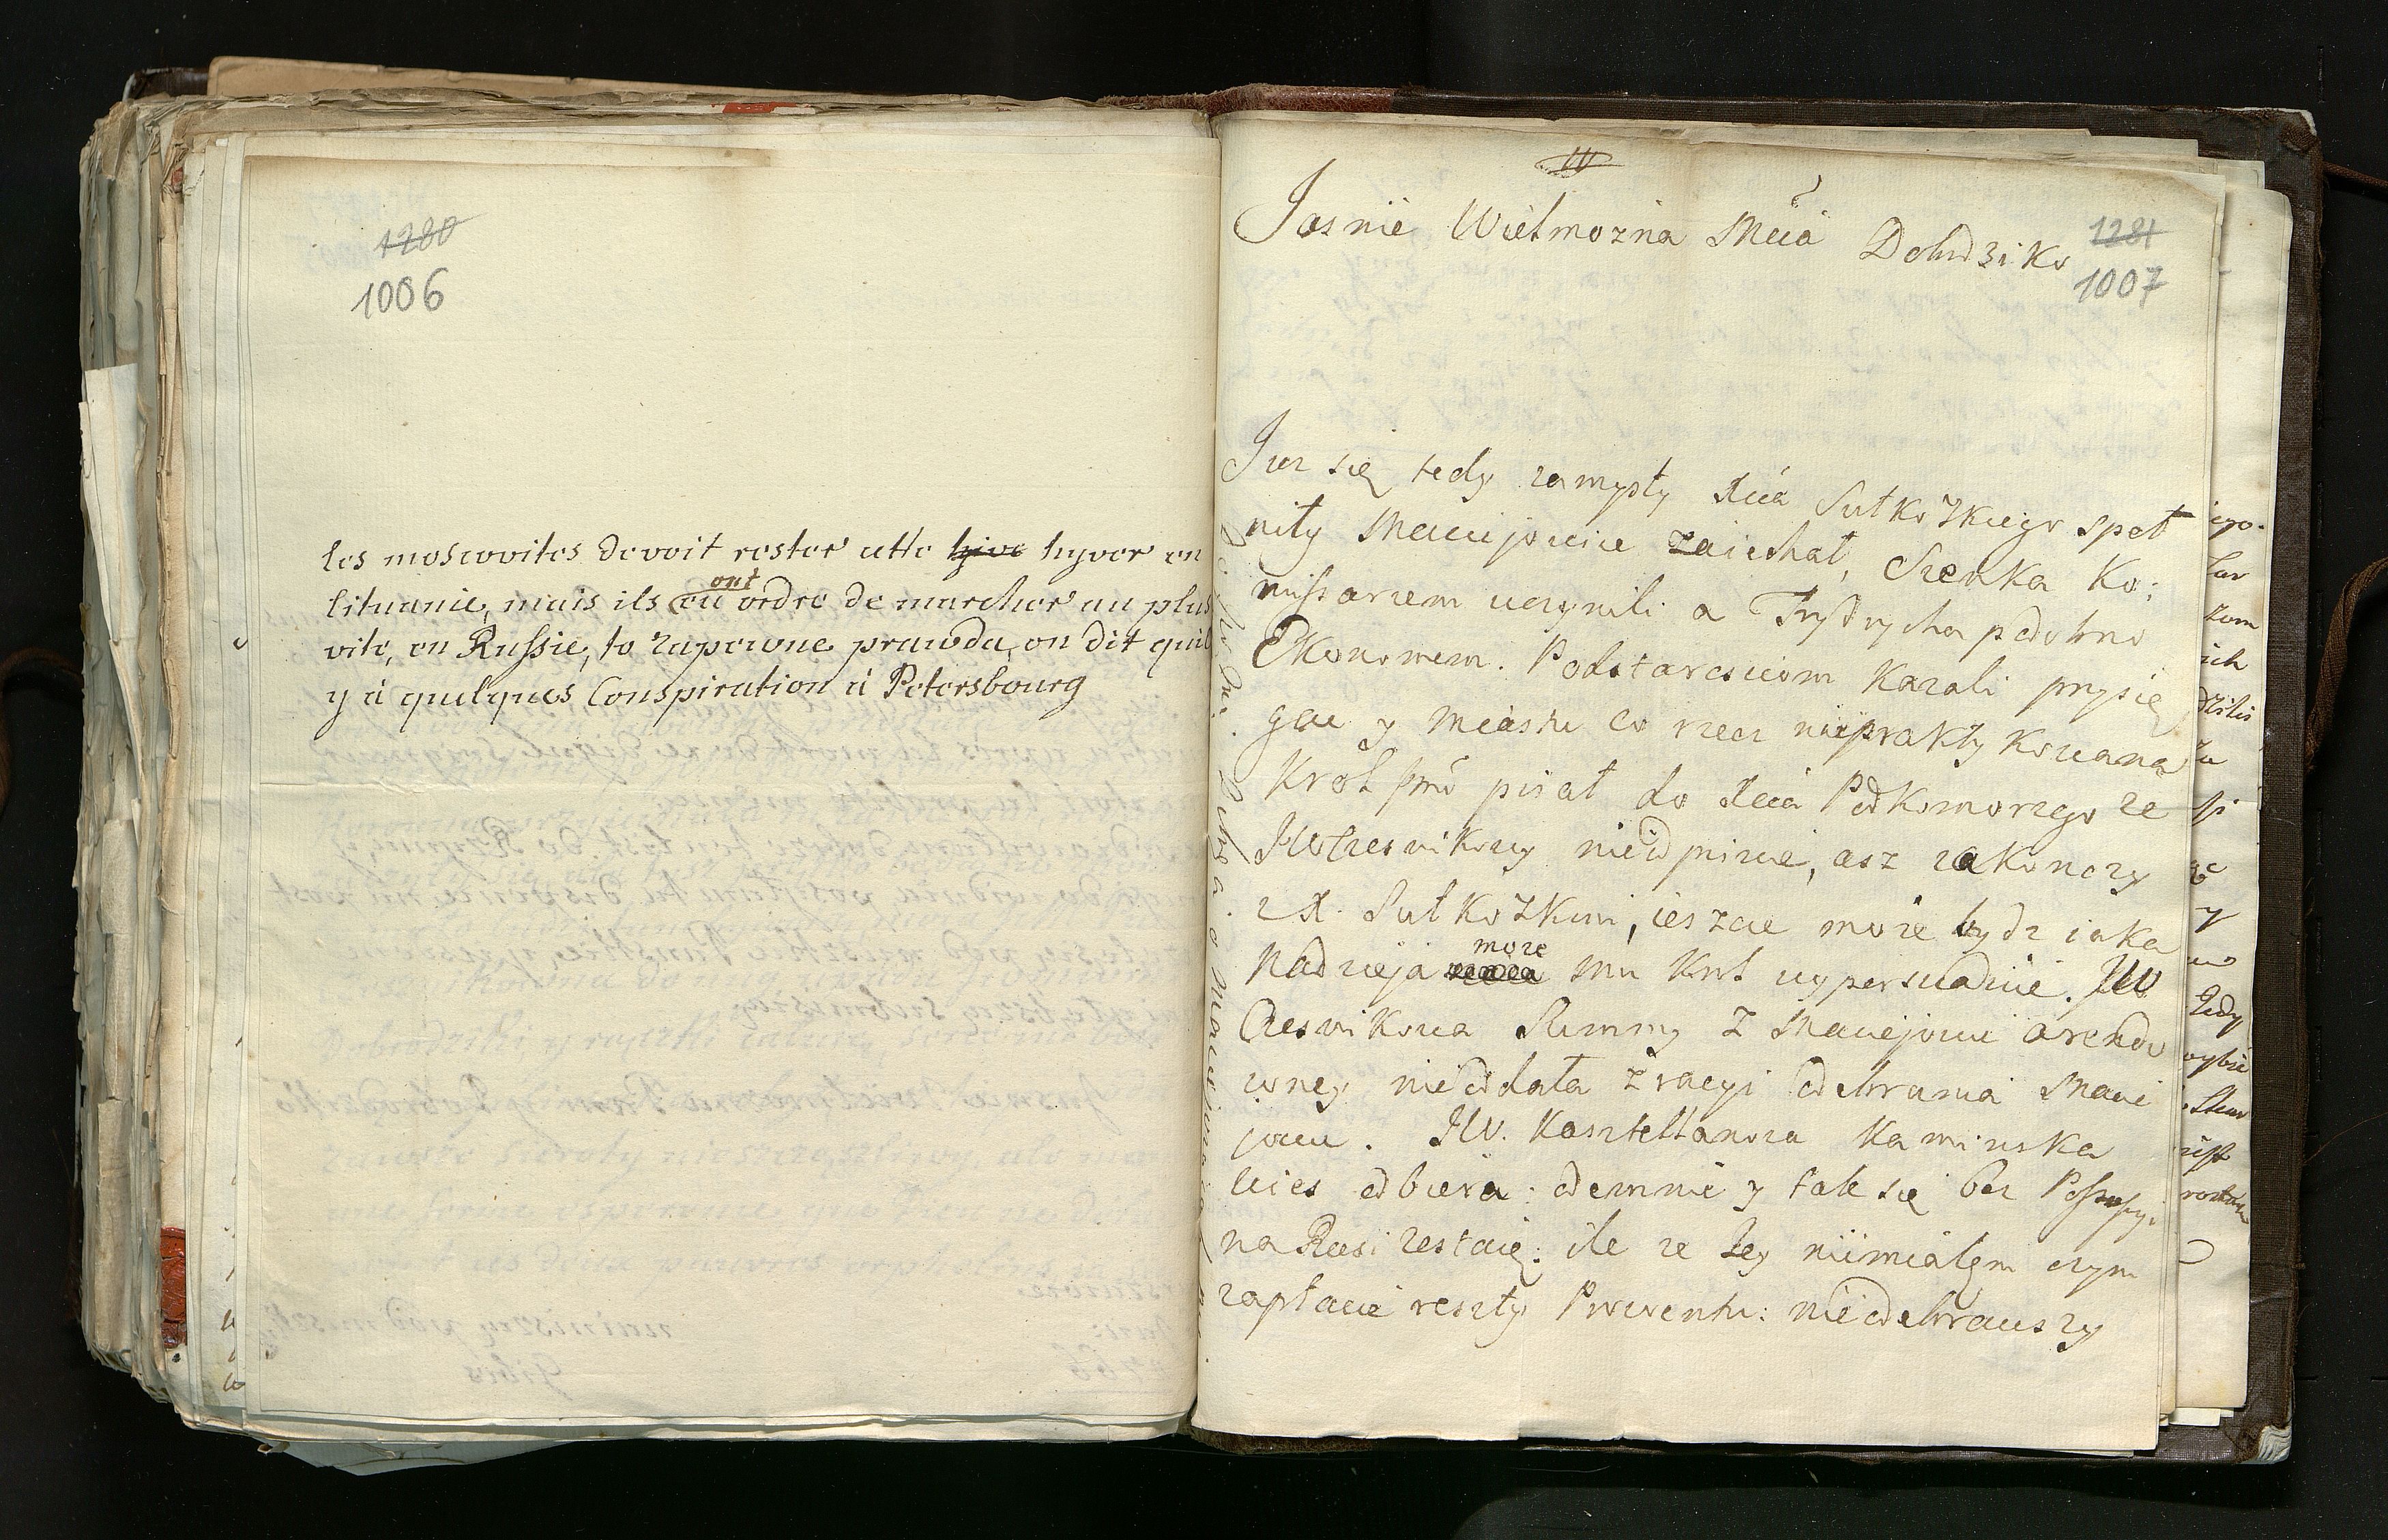 1280
1006
les moscovites devoit rester cette hive hyver en
lituanie, mais ils ont ordre de marcher au plus
vite, en Russie, to zapewne prawda, on dit quil
y à quelques Conspiration à Petersbourg
1281
1007
Jasnie Wielmozna Mcia Dobrdziko
Juz się tedy zamysły Xcia Sułkozkiego speł
niły Maciejowice zaiechał, Sienka Ko:
missarzem uczynili a Frydrycha podobno
Ekonomem. Podstarosciom kazali przysię
gac y Miastu co rzecz nieprakty kowana
Krol Jmć pisał do Xcia Podkomorzego ze
JWCzesnikowy nieodpisze, asz zakonczy
z X. Sułkozkim, ieszcze moze bydz iaka
Nadzieja moze mu Krol wypersuaduie. JW
Czesnikowa Summy z Maciejowic arendo
wney nieoddała z racyi odebrania Maci
jowic. JW. Kasztellanowa Kaminska
wies odbiera odemnie y tak się bez Possessyi
na Rusi zostaię: ile ze tey niimiałem czym
zapłacic reszty Prowentu: nieodebrawszy